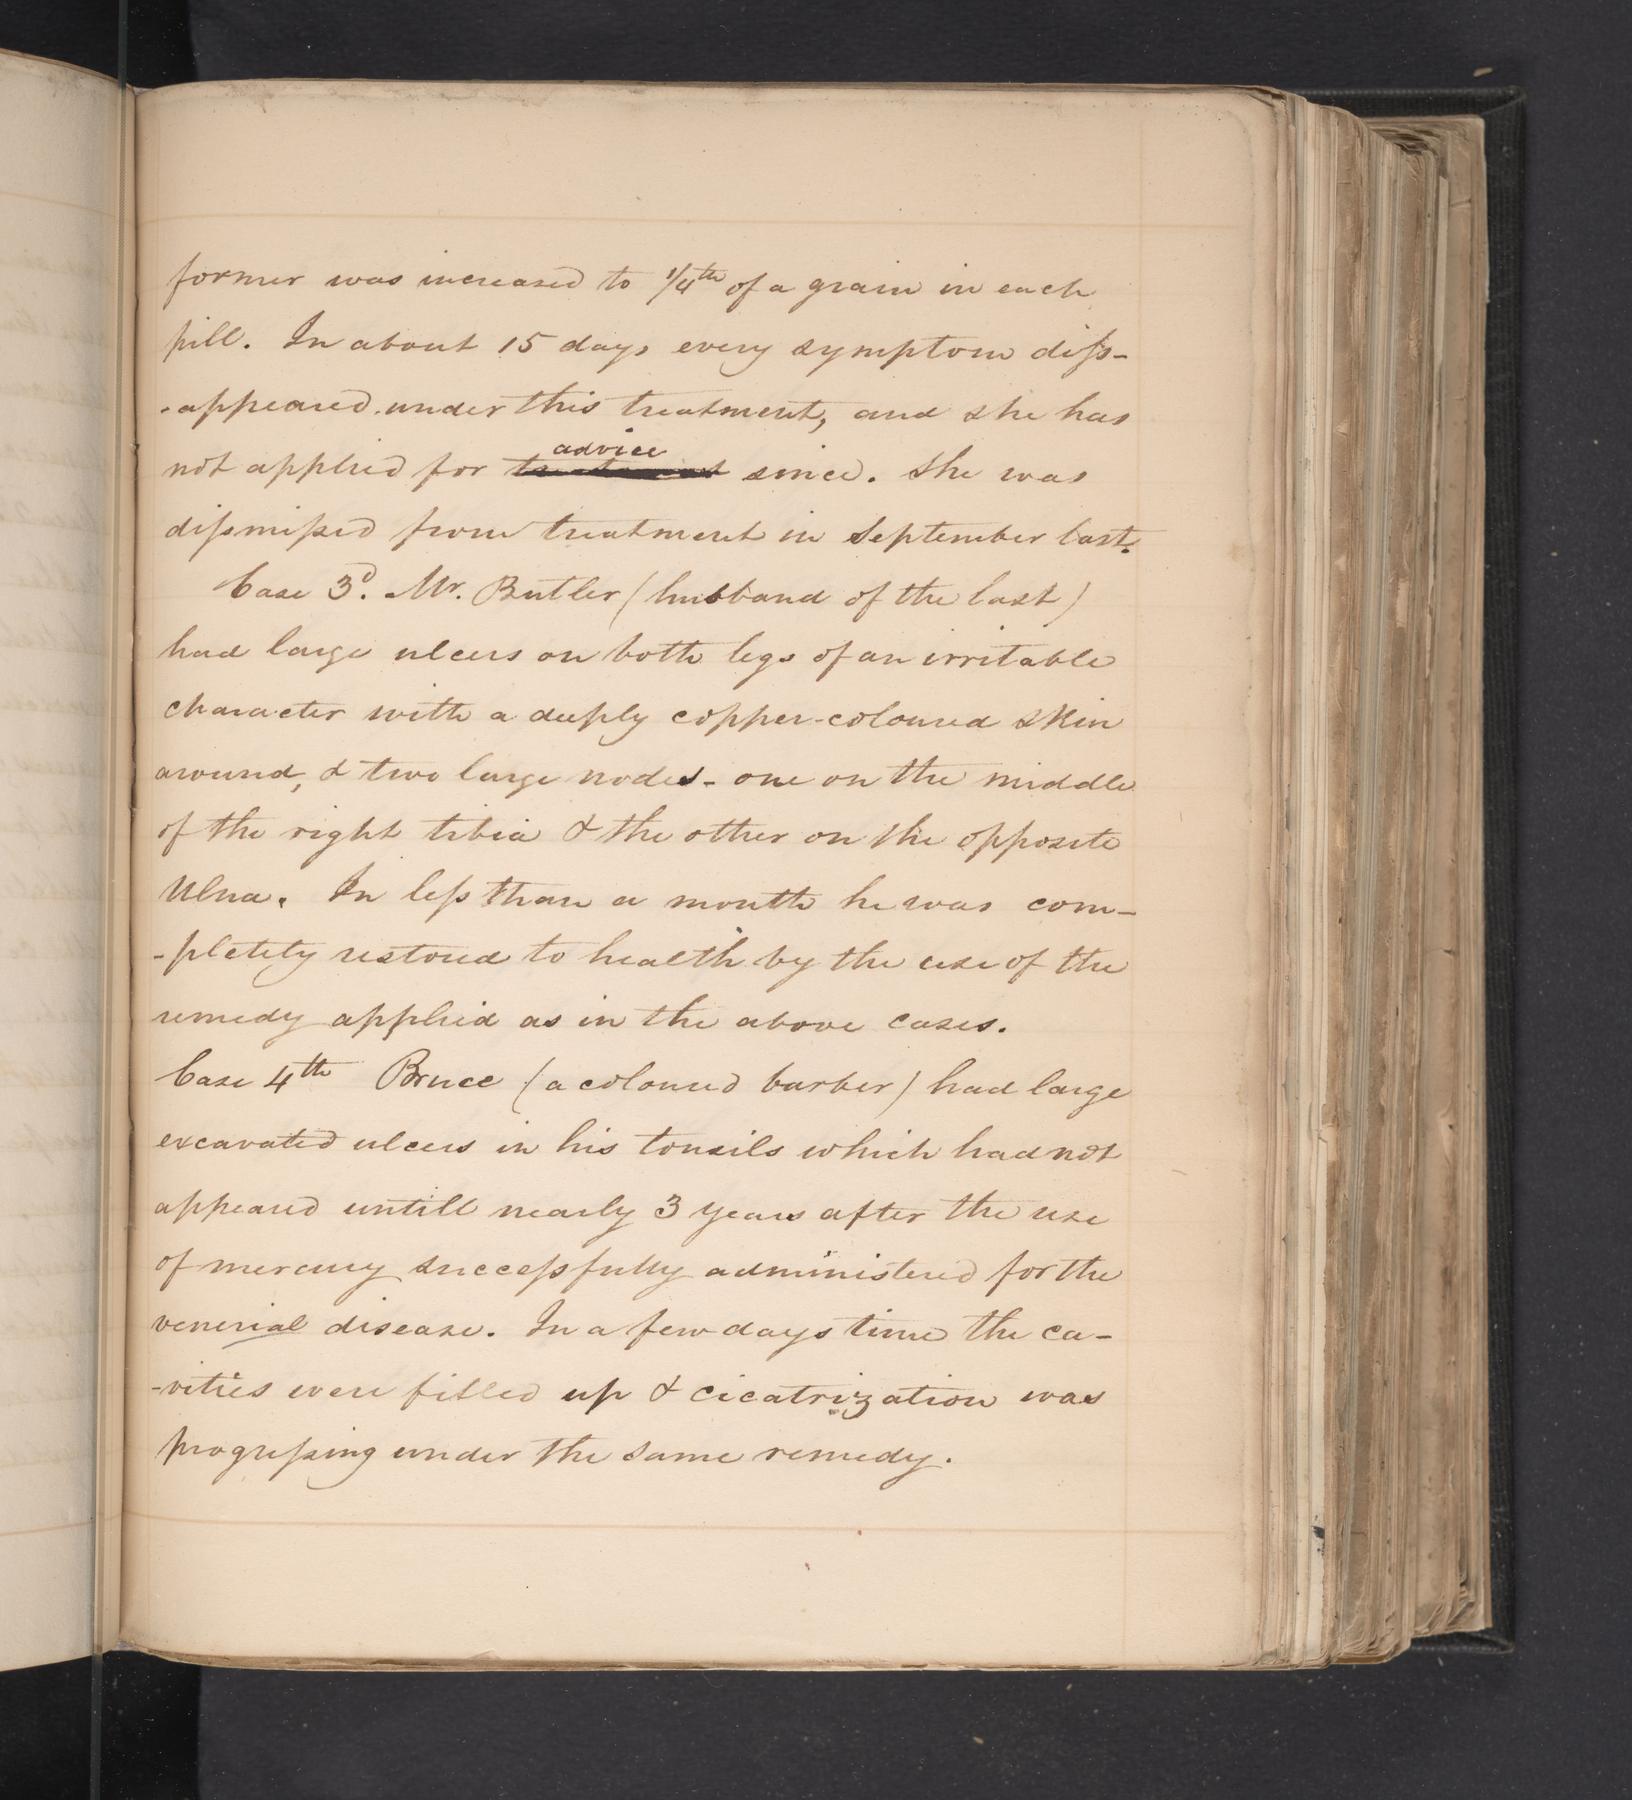 former was increased to 1/4th of a grain in each
pill. In about 15 days every symptom diss-
-appeared under this treatment, and she has
not applied for treatment advice since. She was
dissmissed from treatment in September last.
Case 3d. Mr. Butler (husband of the last)
had large ulcers on both legs of an irritable
character with a deeply copper-coloured skin
around, & two large nodes - one on the middle
of the right tibia & the other on the opposite
Ulna. In less than a month he was com-
-pletely restored to health by the use of the
remedy applied as in the above cases.
Case 4th Bruce (a coloured barber) had large
excavated ulcers in his tonsils which had not
appeared untill nearly 3 years after the use
of mercury successfully administered for the
venerial disease. In a few days time the ca-
-vities were filled up & cicatrization was
progressing under the same remedy.